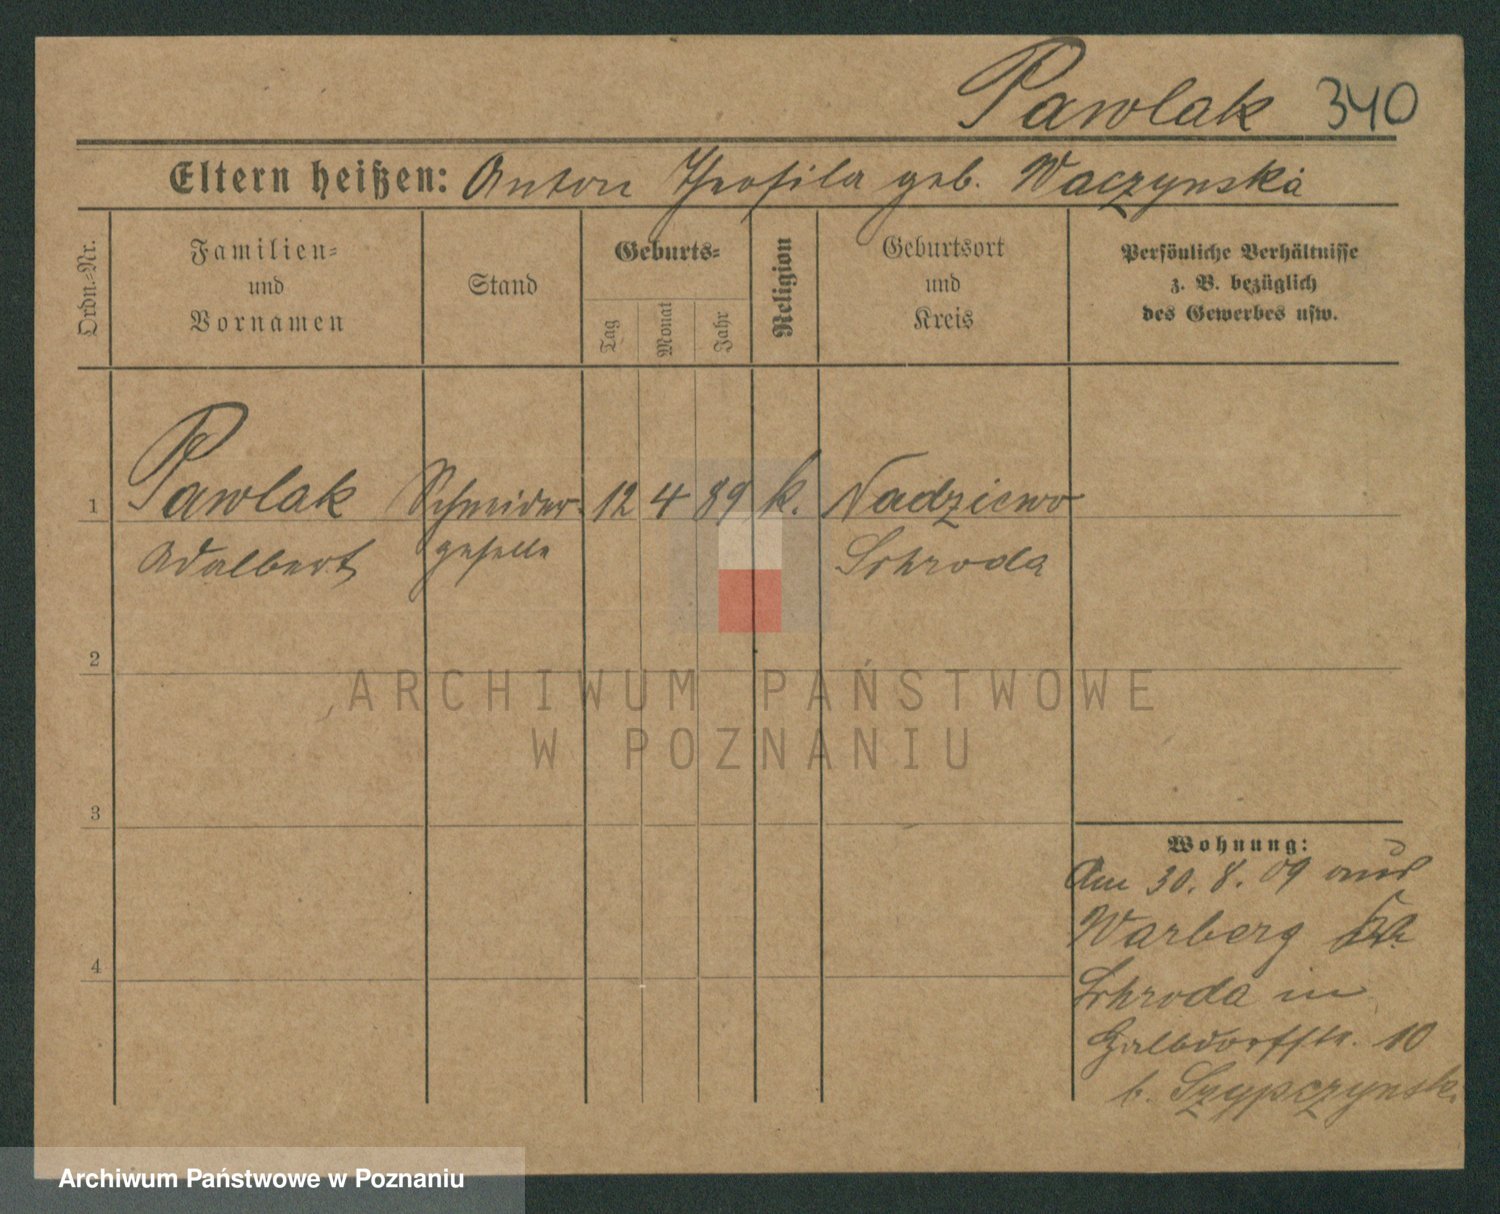 Pawlak 340
Eltern heißen: Anton Theofila geb. Waczynska
Ordn.-Nr.
Familien-
und
Vornamen
Stand
Geburts-
Tag
Monat
Jahr
Religion
Geburtsort
und
Kreis
Persönliche Verhältnisse
z. B. bezüglich
des Gewerbes usw.
1 Pawlak Schneider- 12 4 89 k. Nadziewo
Adalbert geselle Schroda
2
3
4
Wohnung:
Am 30. 8. 09 aus
Warberg Kr.
Schroda in
Halbdorfstr. 10
b. Szypczynsk.
ARCHIWUM PAŃSTWOWE
W POZNANIU
Archiwum Państwowe w Poznaniu